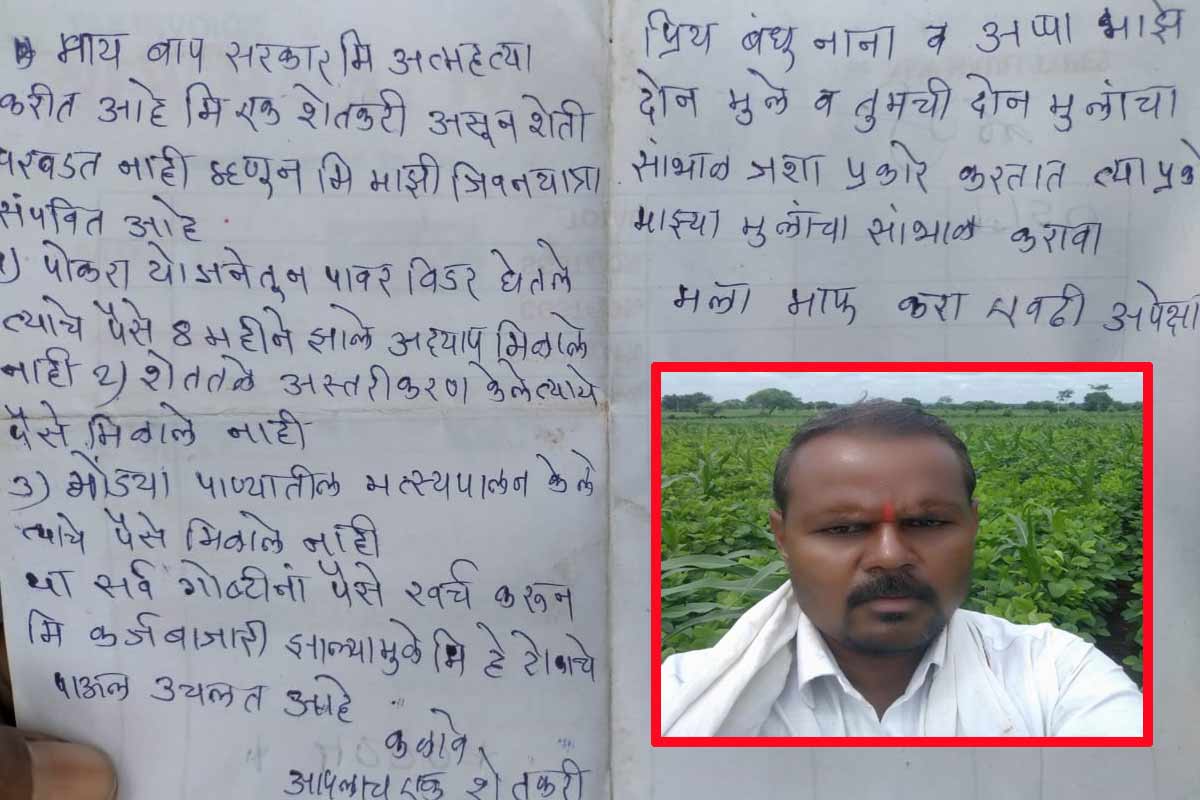 माय बाप सरकार मि अत्महत्या
करीत आहे मि एक शेतकरी असून शेती
परवडत नाही म्हणुन मि माझी जिवनयात्रा
संपवित आहे
१) पोकरा योजनेतुन पावर विडर घेतले
त्याचे पैसे 8 महीने झाले अद्याप मिळाले
नाही २) शेततळे अस्तरीकरण केले त्याचे
पैसे मिळाले नाही
३) गोडया पाण्यातील मत्स्यपालन केले
त्याचे पैसे मिळाले नाही
या सर्व गोष्टीनां पैसे खर्च करून
मि कर्जबाजारी झाल्यामुळे मि हे टोकाचे
पाऊल उचलत आहे
कळावे,
आपलाच एक शेतकरी
प्रिय बंधु नाना व अप्पा माझे
दोन मुले व तुमची दोन मुलांचा
सांभाळ जशा प्रकारे करतात त्या प्रका
माझ्या मुलांचा सांभाळ करावा
मला माफ करा एवढी अपेक्षा